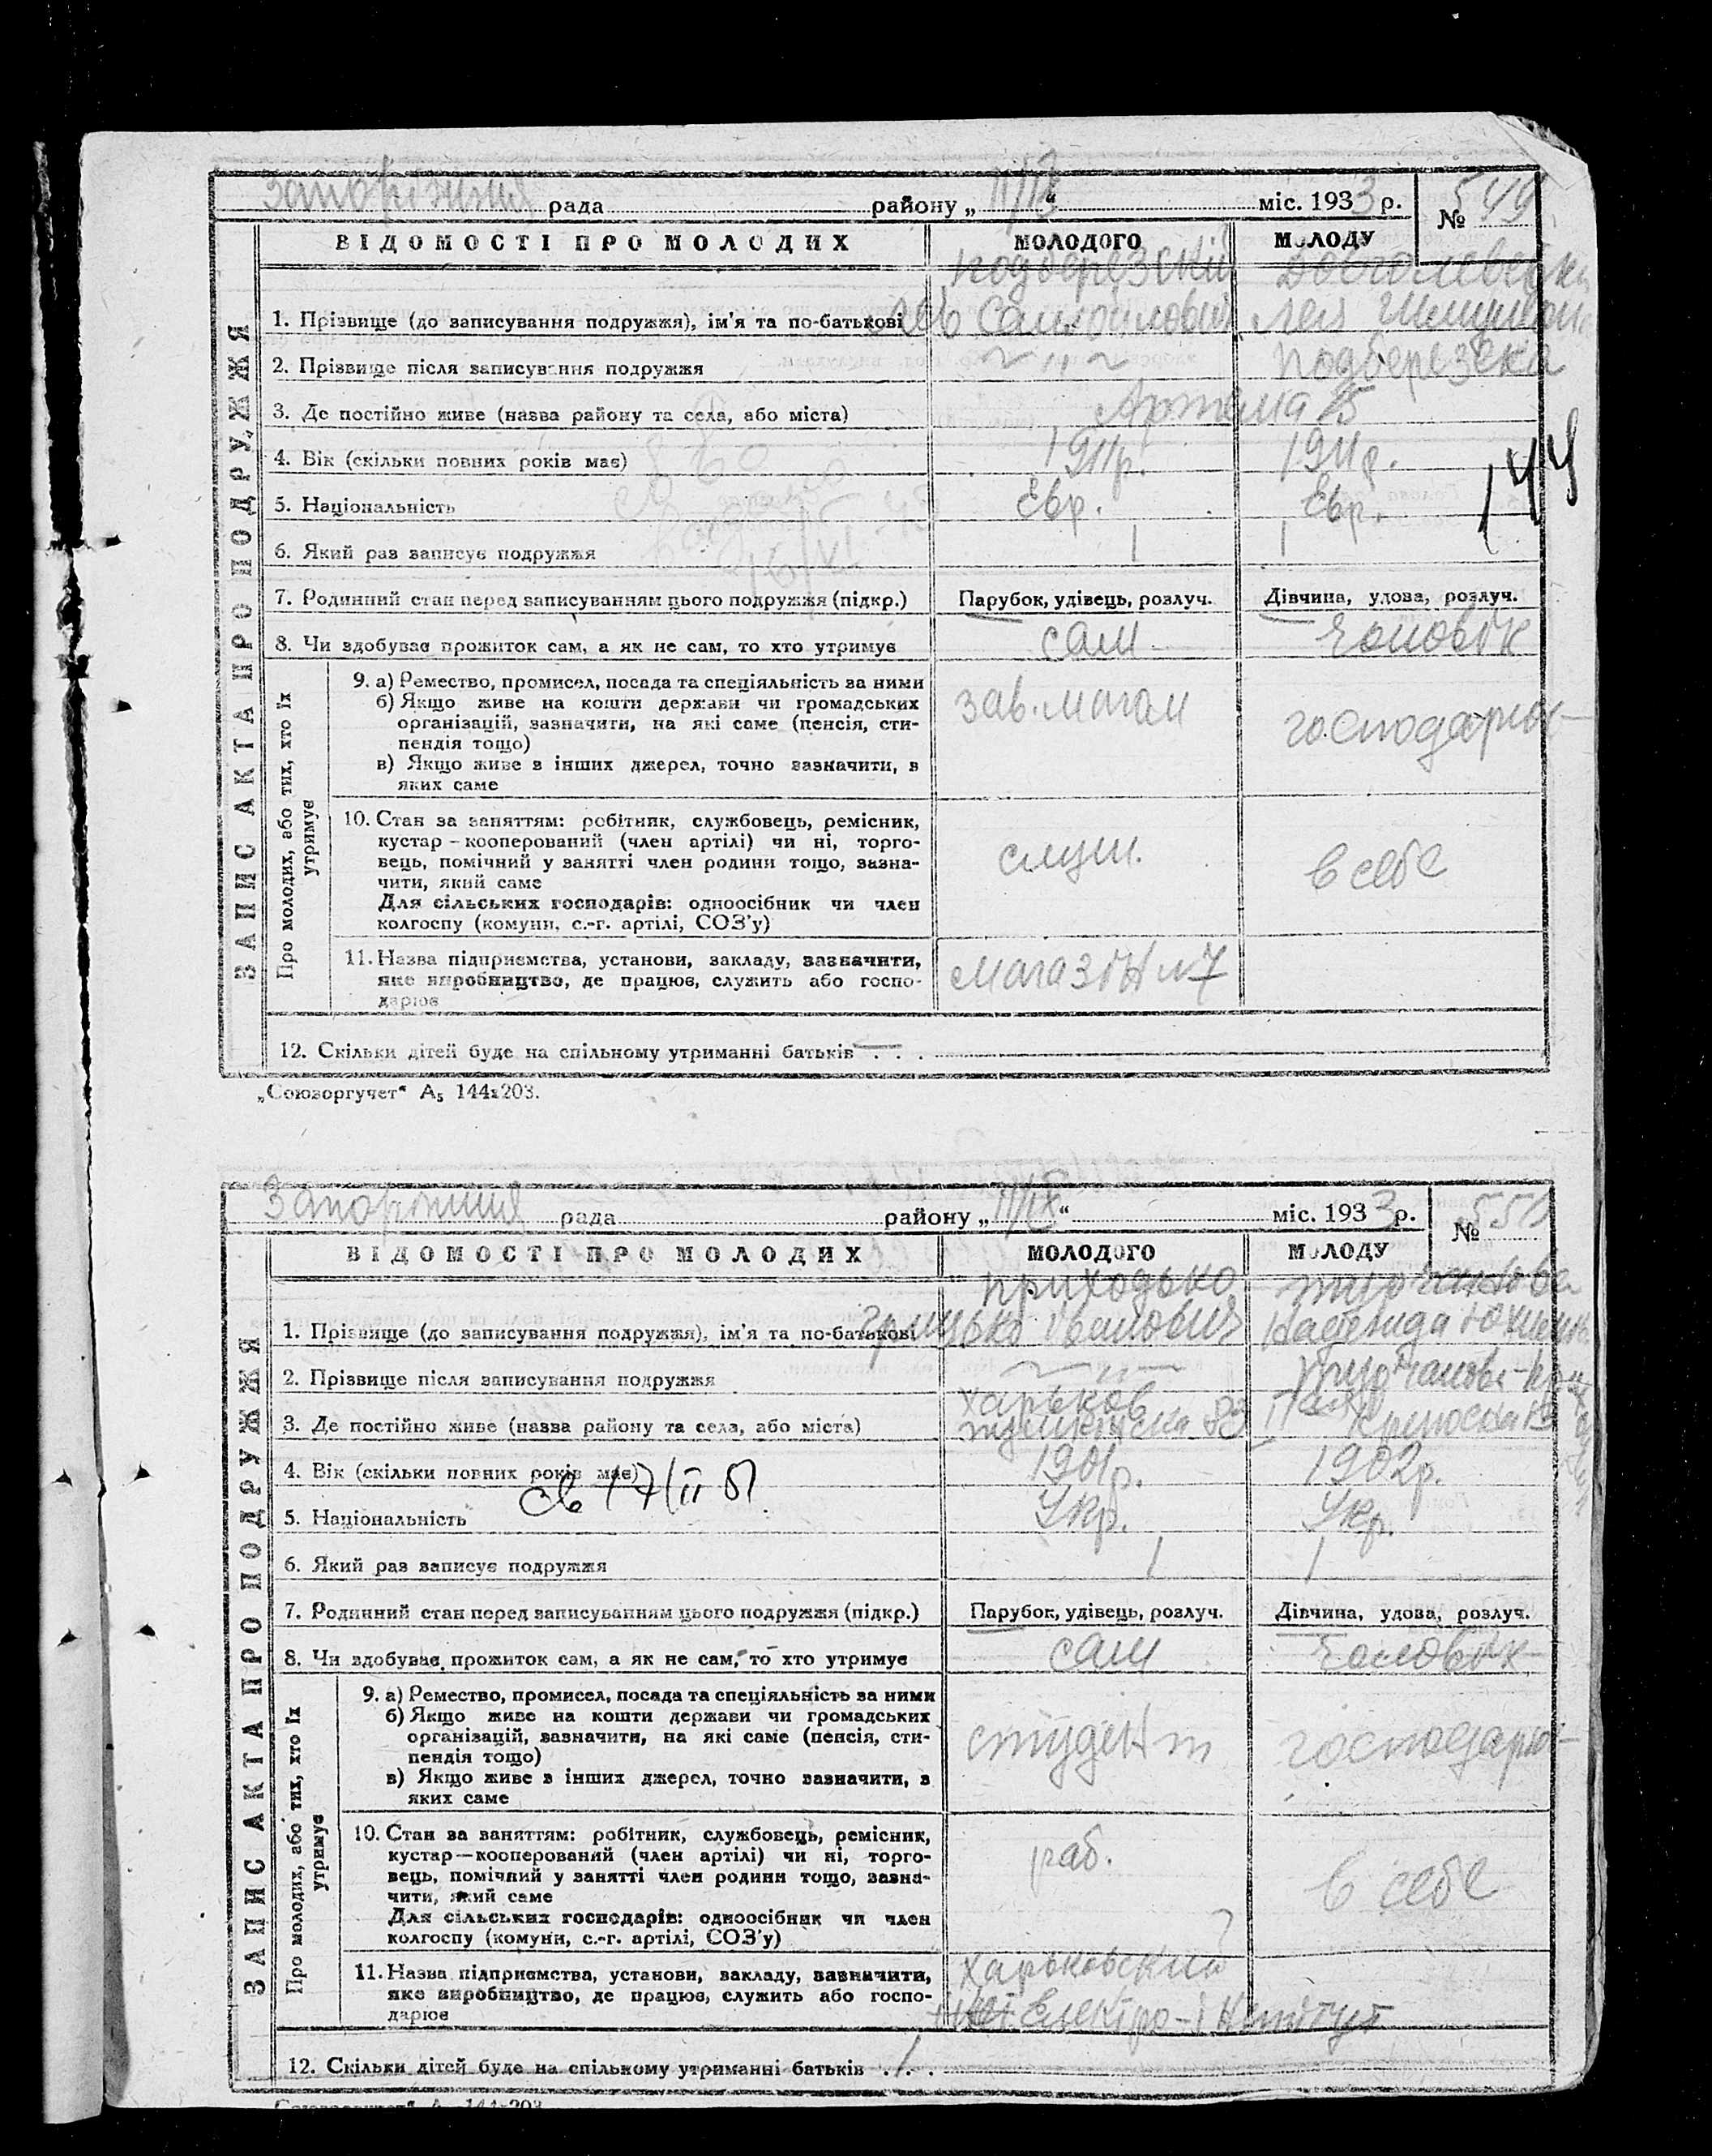 ЗАПИС АКТА ПРО ПОДРУЖЖЯ
Запоріжжя рада району „11/IX“ міс. 1933 р. № 549
ВІДОМОСТІ ПРО МОЛОДИХ МОЛОДОГО МОЛОДУ
Подберезский
1. Прізвище (до записування подружжя), ім'я та по-батькові Лев Самойлович Лея
2. Прізвище після записування подружжя ~ „ ~ Подберезска
3. Де постійно живе (назва району та села, або міста) Артема 15
4. Вік (скільки повних років має) 1911р. 1911р.
144
5. Національність Евр. Евр.
6. Який раз записує подружжя 1 1
7. Родинний стан перед записуванням цього подружжя (підкр.) Парубок, удівець, розлуч. Дівчина, удова, розлуч.
8. Чи здобуває прожиток сам, а як не сам, то хто утримує сам чоловік
Про молодих, або тих, хто їх утримує
9. а) Ремество, промисел, посада та спеціяльність за ними
б) Якщо живе на кошти держави чи громадських
організацій, зазначити, на які саме (пенсія, сти-
пендія тощо)
в) Якщо живе з інших джерел, точно зазначити, з
яких саме
зав. магом господарює
10. Стан за заняттям: робітник, службовець, ремісник,
кустар – кооперований (член артілі) чи ні, торго-
вець, помічний у занятті член родини тощо, зазна-
чити, який саме
Для сільських господарів: одноосібник чи член
колгоспу (комуни, с.-г. артілі, СОЗ'у)
служ. в себе
11. Назва підприємства, установи, закладу, зазначити,
яке виробництво, де працює, служить або госпо-
дарює
магазін №7
12. Скільки дітей буде на спільному утриманні батьків — . .
„Союзоргучет“ А₅ 144х203.
ЗАПИС АКТА ПРО ПОДРУЖЖЯ
Запоріжжя рада району „11/IX“ міс. 1933 р. № 550
ВІДОМОСТІ ПРО МОЛОДИХ МОЛОДОГО МОЛОДУ
Приходько
1. Прізвище (до записування подружжя), ім'я та по-батькові Грицько Іванович Надежида
2. Прізвище після записування подружжя ~ „ —
Харьков
3. Де постійно живе (назва району та села, або міста) Пушкінска
4. Вік (скільки повних років має) 1901р. 1902р.
св 17/II 51
5. Національність Укр. Укр.
6. Який раз записує подружжя 1 1
7. Родинний стан перед записуванням цього подружжя (підкр.) Парубок, удівець, розлуч. Дівчина, удова, розлуч.
8. Чи здобуває прожиток сам, а як не сам, то хто утримує сам чоловік
Про молодих, або тих, хто їх утримує
9. а) Ремество, промисел, посада та спеціяльність за ними
б) Якщо живе на кошти держави чи громадських
організацій, зазначити, на які саме (пенсія, сти-
пендія тощо)
в) Якщо живе з інших джерел, точно зазначити, з
яких саме
студент господарює
10. Стан за заняттям: робітник, службовець, ремісник,
кустар—кооперований (член артілі) чи ні, торго-
вець, помічний у занятті член родини тощо, зазна-
чити, який саме
Для сільських господарів: одноосібник чи член
колгоспу (комуни, с.-г. артілі, СОЗ'у)
раб. в себе
11. Назва підприємства, установи, закладу, зазначити,
яке виробництво, де працює, служить або госпо-
дарює
Харьковский
Електро-інстітут
12. Скільки дітей буде на спільному утриманні батьків . 1 . .
„Союзоргучет“ А₅ 144х203